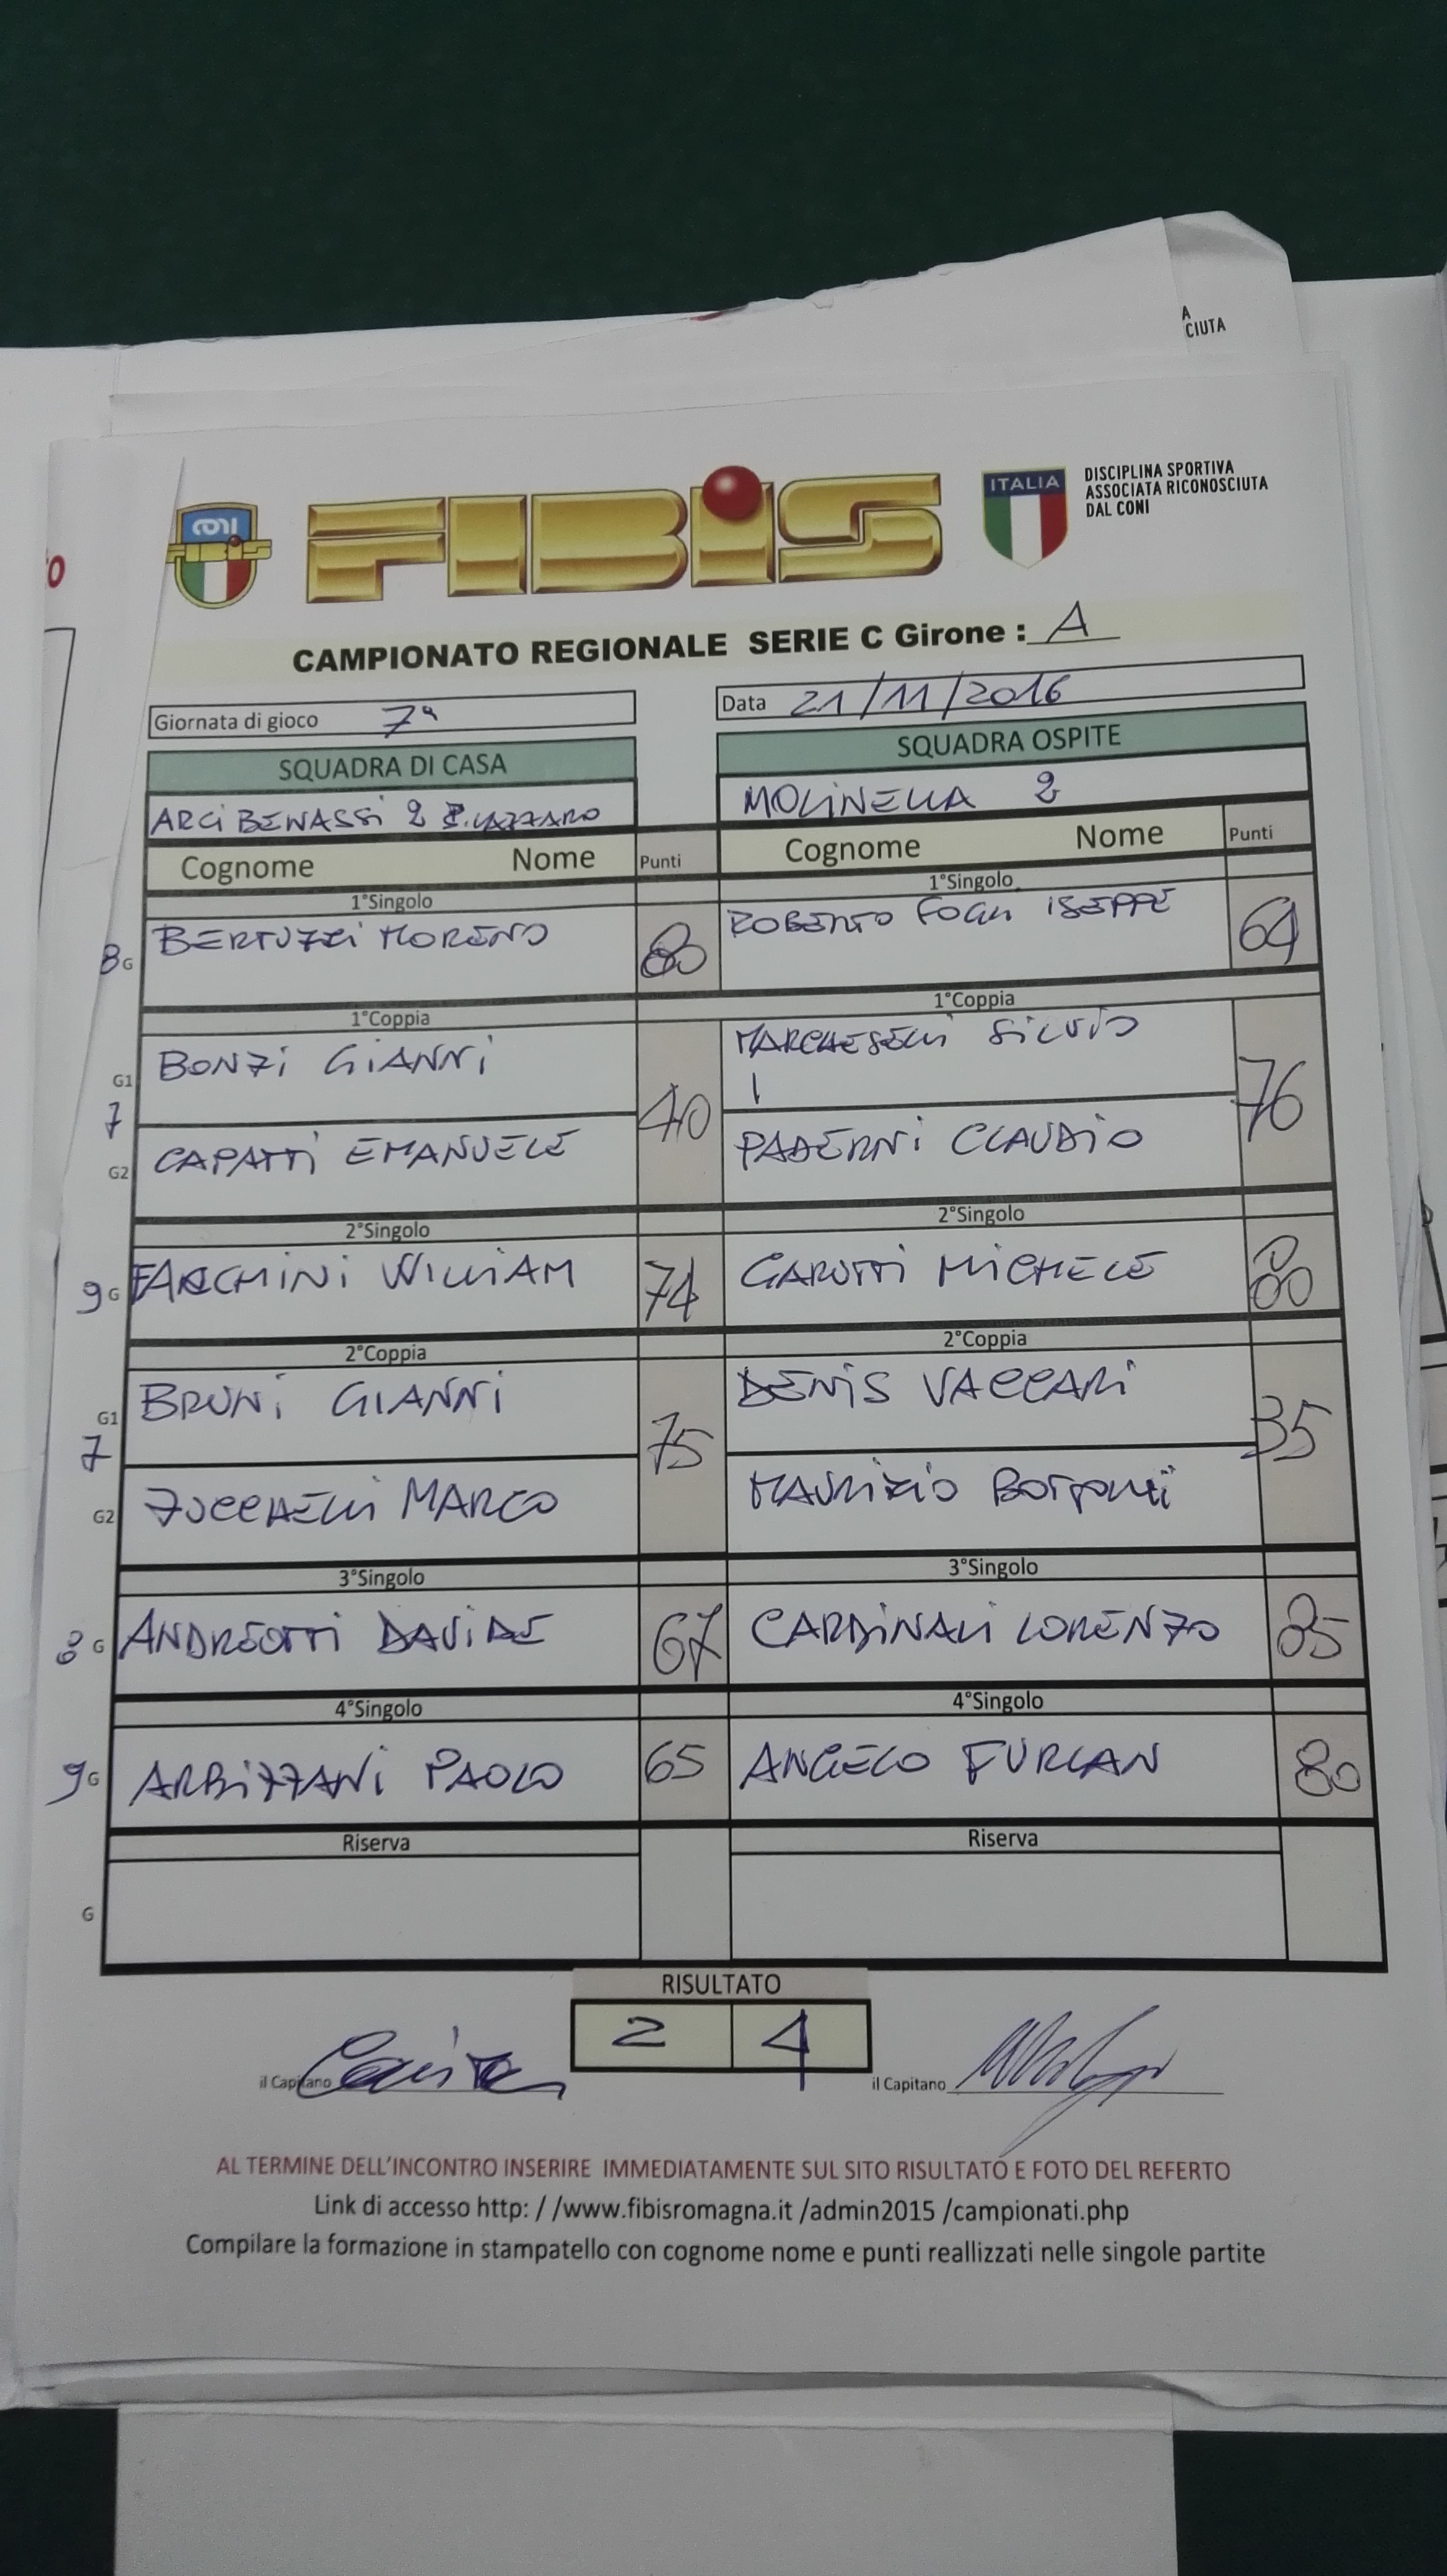 A
CIUTA
CONI
FIBiS
ITALIA
DISCIPLINA SPORTIVA
ASSOCIATA RICONOSCIUTA
DAL CONI
O
CAMPIONATO REGIONALE SERIE C Girone : A
Giornata di gioco 7ª
Data 21/11/2016
SQUADRA DI CASA
SQUADRA OSPITE
ARCI BENASSI 2 S.LAZZARO
MOLINELLA 2
Cognome Nome Punti Cognome Nome Punti
1°Singolo 1°Singolo
8 G BERTUZZI MORENO 80 ROBERTO FOGLI ISEPPE 64
1°Coppia 1°Coppia
G1 BONZI GIANNI MARCHESELLI SILVIO
7 40 76
G2 CAPATTI EMANUELE PADERNI CLAUDIO
2°Singolo 2°Singolo
9 G FACCHINI WILLIAM 74 GARUTTI MICHELE 80
2°Coppia 2°Coppia
G1 BRUNI GIANNI DENIS VACCARI
7 75 35
G2 ZUCCHELLI MARCO MAURIZIO
3°Singolo 3°Singolo
8 G ANDREOTTI DAVIDE 67 CARDINALI LORENZO 85
4°Singolo 4°Singolo
9 G ARBIZZANI PAOLO 65 ANGELO FURLAN 80
Riserva Riserva
G
RISULTATO
2 4
il Capitano il Capitano
AL TERMINE DELL'INCONTRO INSERIRE IMMEDIATAMENTE SUL SITO RISULTATO E FOTO DEL REFERTO
Link di accesso http: / /www.fibisromagna.it /admin2015 /campionati.php
Compilare la formazione in stampatello con cognome nome e punti reallizzati nelle singole partite